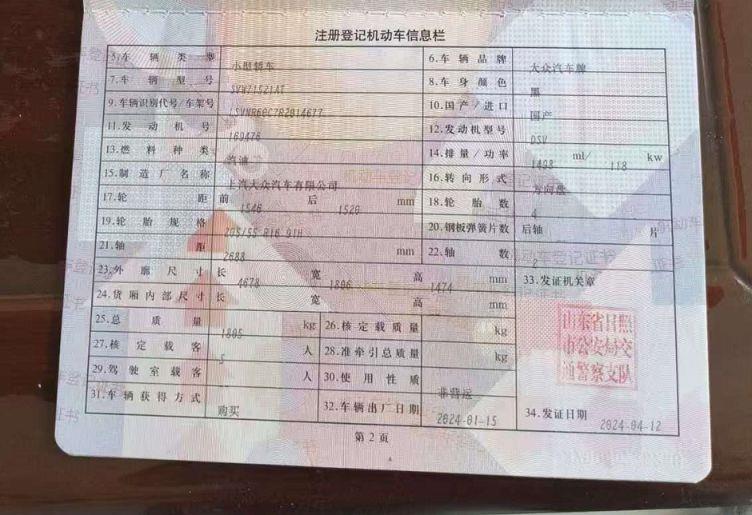 注册登记机动车信息栏
5.车辆类型 小型轿车 6.车辆品牌 大众汽车牌
7.车辆型号 SVW71521AT 8.车身颜色 黑
9.车辆识别代号/车架号 10.国产/进口 国产
11.发动机号 169476 12.发动机型号 DSV
13.燃料种类 汽油 14.排量/功率 1498 ml/ 118 kw
15.制造厂名称 上汽大众汽车有限公司 16.转向形式 方向盘
17.轮距 前 1546 后 1520 mm 18.轮胎数 4
19.轮胎规格 205/55 R16 91H 20.钢板弹簧片数 后轴 片
21.轴距 2688 mm 22.轴数 2
23.外廓尺寸 长 4678 宽 1806 高 1474 mm 33.发证机关章
24.货厢内部尺寸 长 宽 高 mm
25.总质量 1805 kg 26.核定载质量 kg
27.核定载客 5 人 28.准牵引总质量 kg
29.驾驶室载客 -- 人 30.使用性质 非营运
31.车辆获得方式 购买 32.车辆出厂日期 2024-01-15 34.发证日期 2024-04-12
山东省日照
市公安局交
通警察支队
第2页